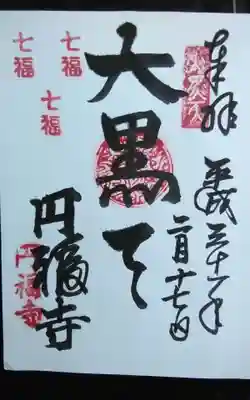 奉拝
平成三十一年
二月十七日
大黒天
七福
七福
七福
円福寺
円福寺